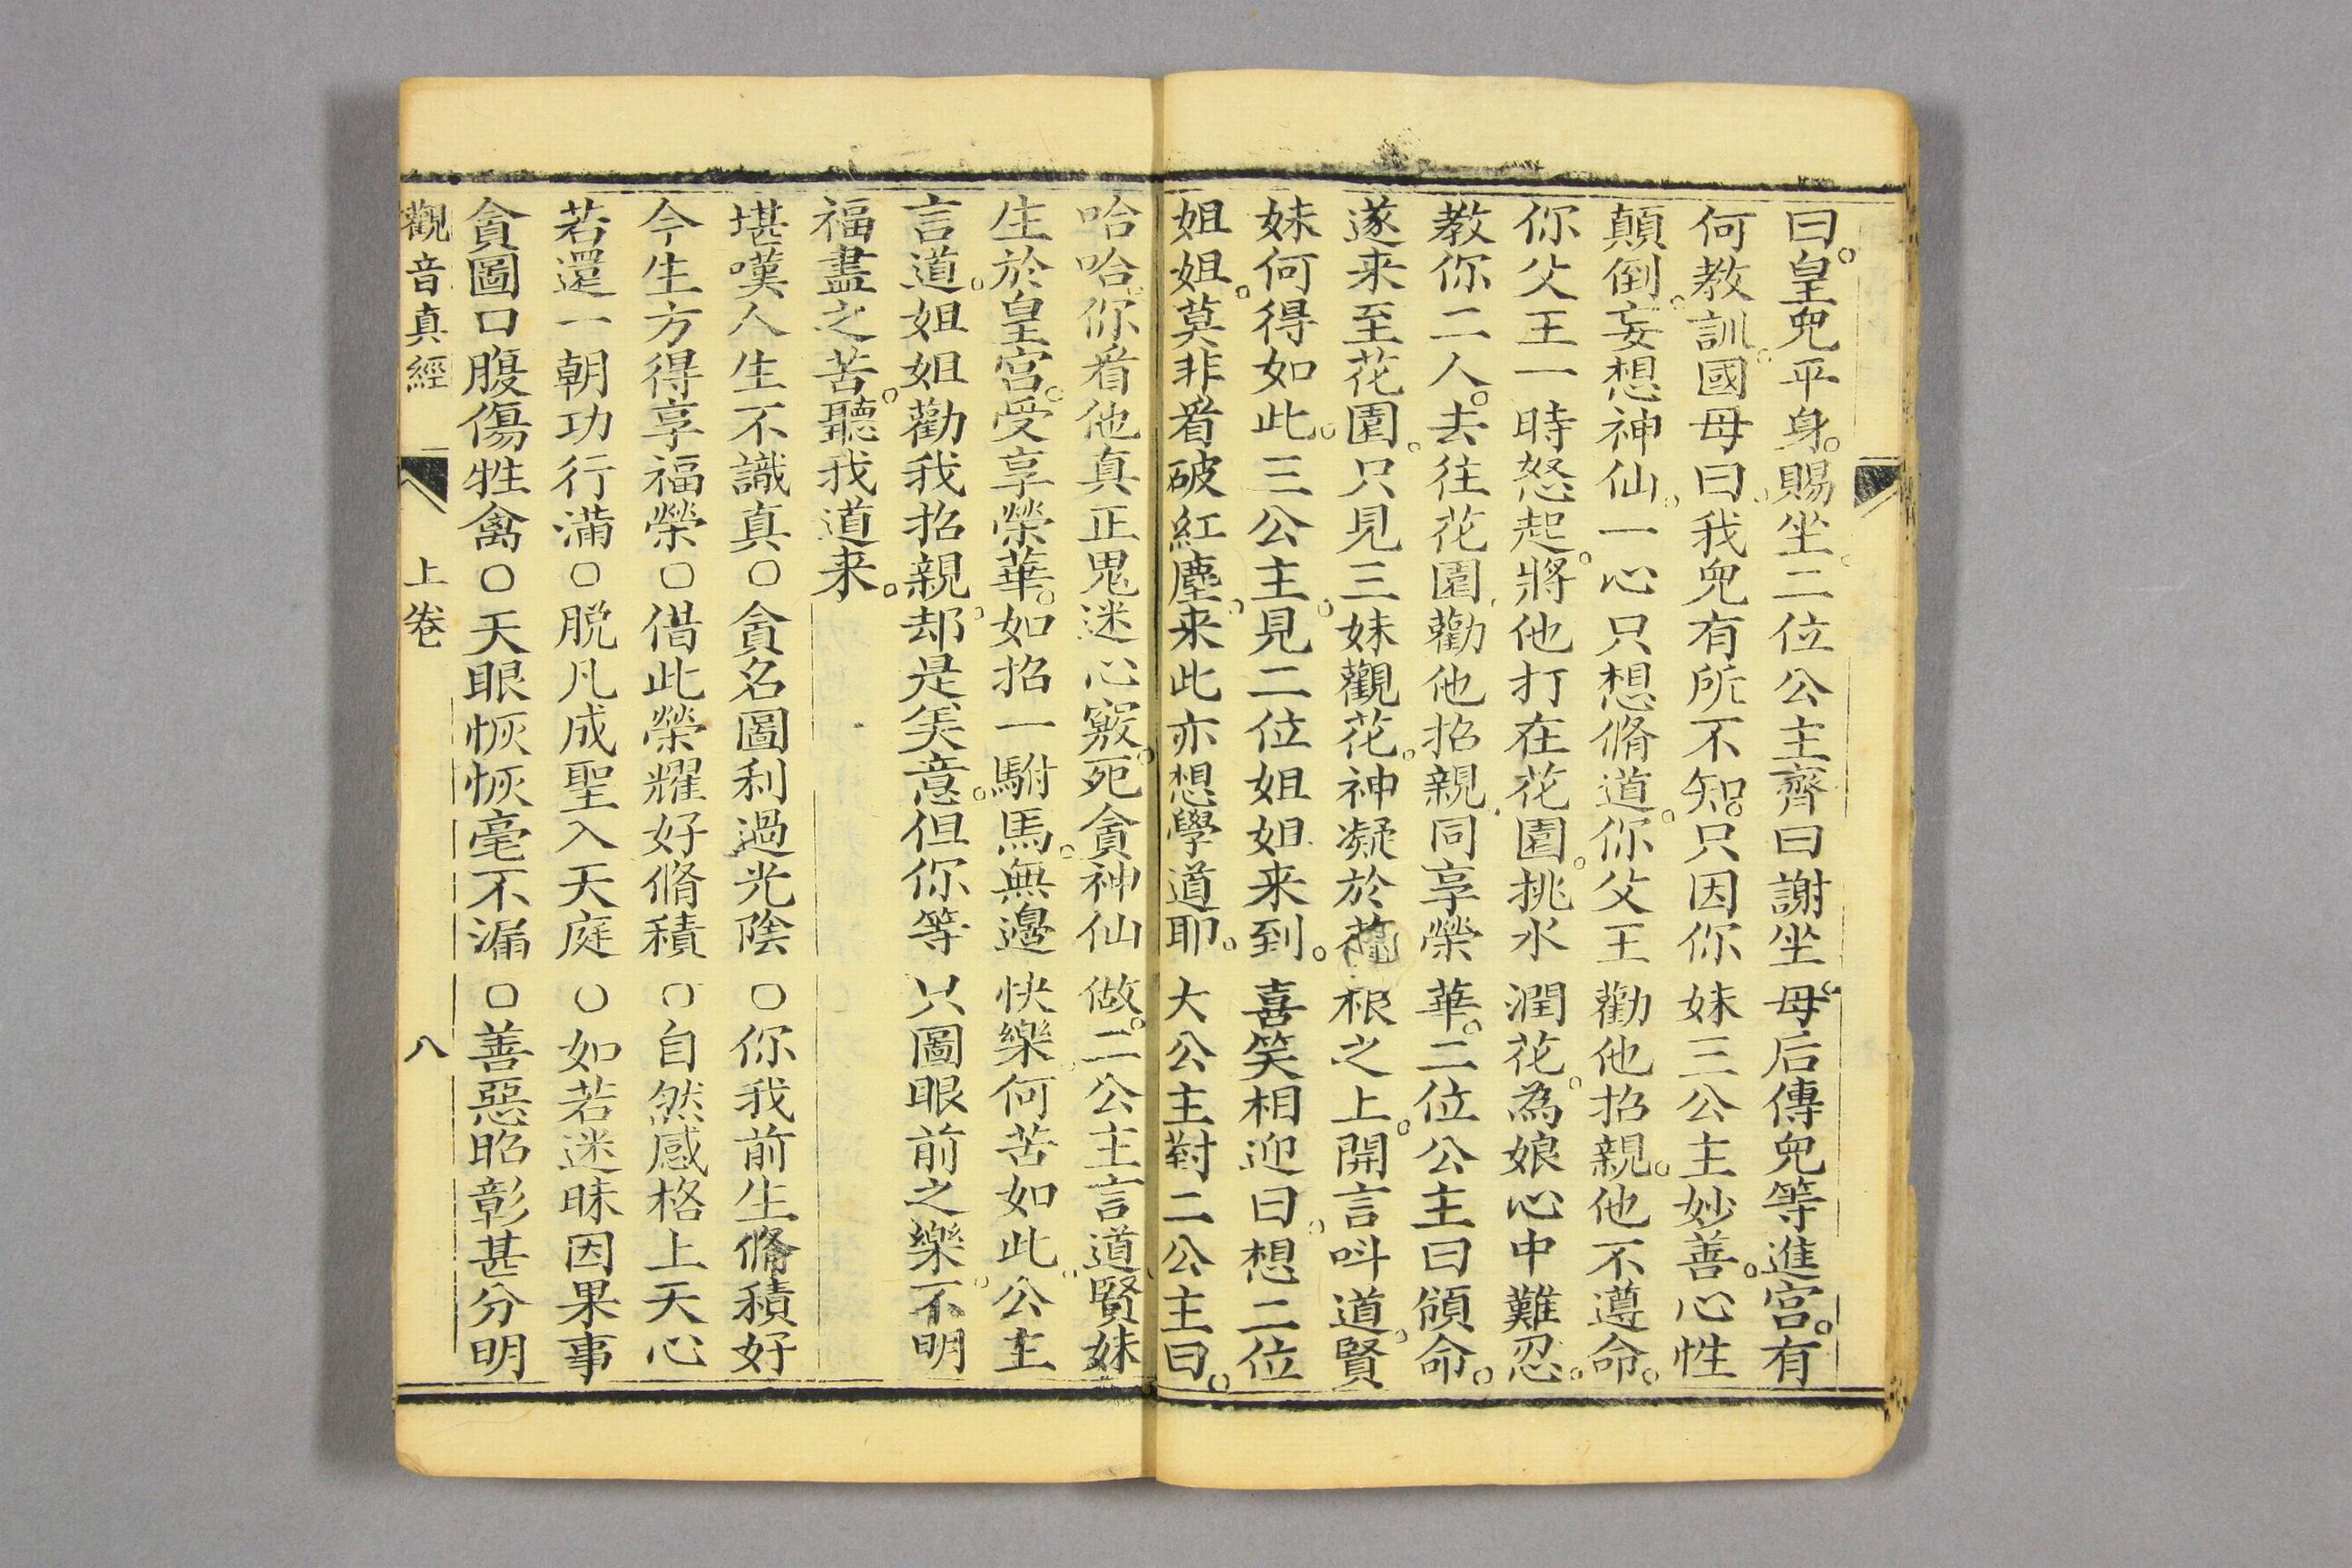 曰。皇兒平身。賜坐。二位公主齊曰謝坐。母后傳兒等進宮。有
何教訓。國母曰。我兒有所不知。只因你妹三公主妙善。心性
顛倒。妄想神仙。一心只想脩道。你父王勸他招親。他不遵命。
你父王一時怒起。將他打在花園。挑水潤花。為娘心中難忍。
教你二人。去往花園。勸他招親。同享榮華。二位公主曰領命。
遂来至花園。只見三妹觀花。神凝於花根之上。開言呌道。賢
妹何得如此。三公主。見二位姐姐来到。喜笑相迎曰。想二位
姐姐。莫非看破紅塵。来此亦想學道耶。大公主對二公主曰。
哈哈。你看他真正鬼迷心竅。死貪神仙做。二公主言道。賢妹
生於皇宮。受享榮華。如招一駙馬。無邊快樂。何苦如此。公主
言道。姐姐勸我招親。却是美意。但你等只圖眼前之樂。不明
福盡之苦。聽我道来。
堪嘆人生不識真○貪名圖利過光陰○你我前生脩積好
今生方得享福榮○借此榮耀好脩積○自然感格上天心
若還一朝功行滿○脱凡成聖入天庭○如若迷昧因果事
貪圖口腹傷牲禽○天眼恢恢毫不漏○善惡昭彰甚分明
觀音真經 上卷 八